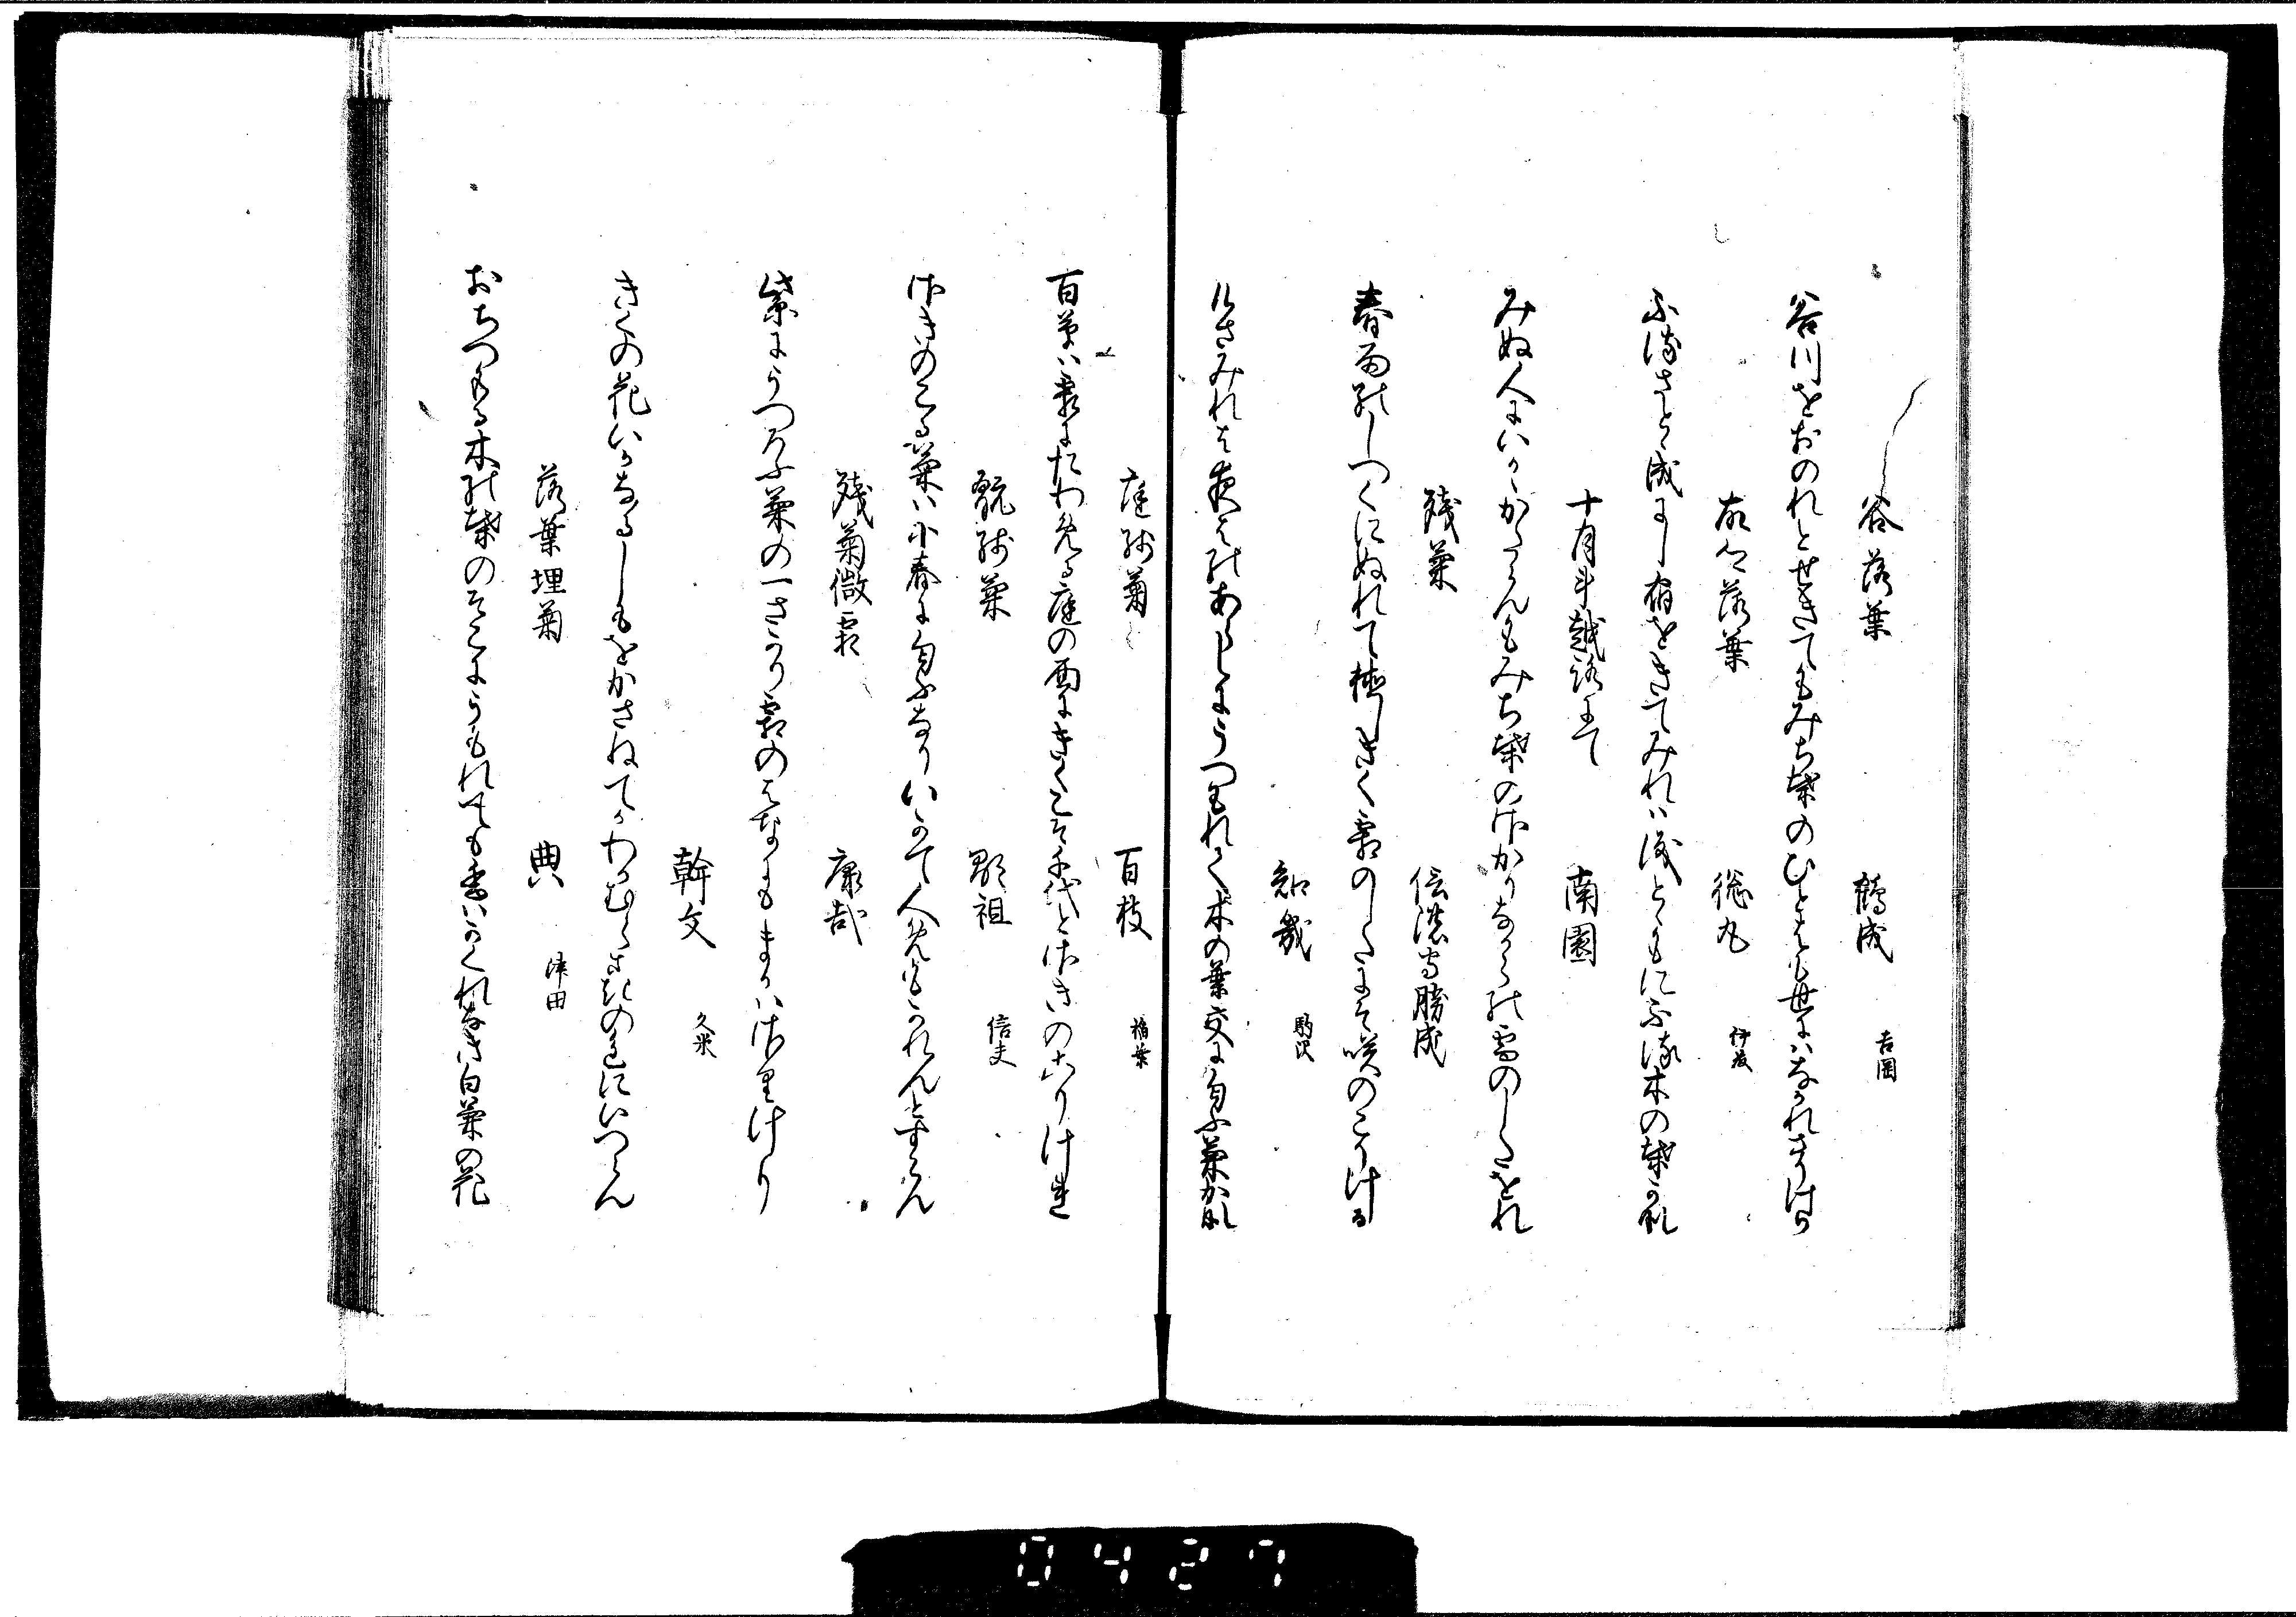 谷落葉　鶴成　吉岡
谷川をおのれとせきてもみち葉のひとはも世にはなかれさりけり
故郷落葉　総丸　伊發
ふる さと 成にし宿をきてみれは とゝもにふる木の葉かな
十月斗越路にて　南園
みぬ人にいかゝかたらんもみち葉のはかりなからの雪のしたをれ
残菊　信濃 勝成
春雨のしつくにぬれて植しきく霜のしたにそ咲のこりける
知幾　駒沢
けさみれは夜はのあらしにうつもれて木の葉交に匂ふ菊かな
庭残菊　百枝　稲葉
百草は霜にたわめる庭の面にきくこそ千代とさきのこりけれ
翫残菊　影祖　信夫
さきのこる菊は小春に匂ふなりいかて人めもかれんとすらん
残菊似霜　康哉
紫にうつろふ菊の一さかり霜のはなにもまかはさりけり
幹文　久米
きくの花いかなるしもをかさねてかわかむらさきの色にいつらん
落葉埋菊　典　津田
おちつもる木の葉のそこにうもれても香はかくれなき白菊の花
0427